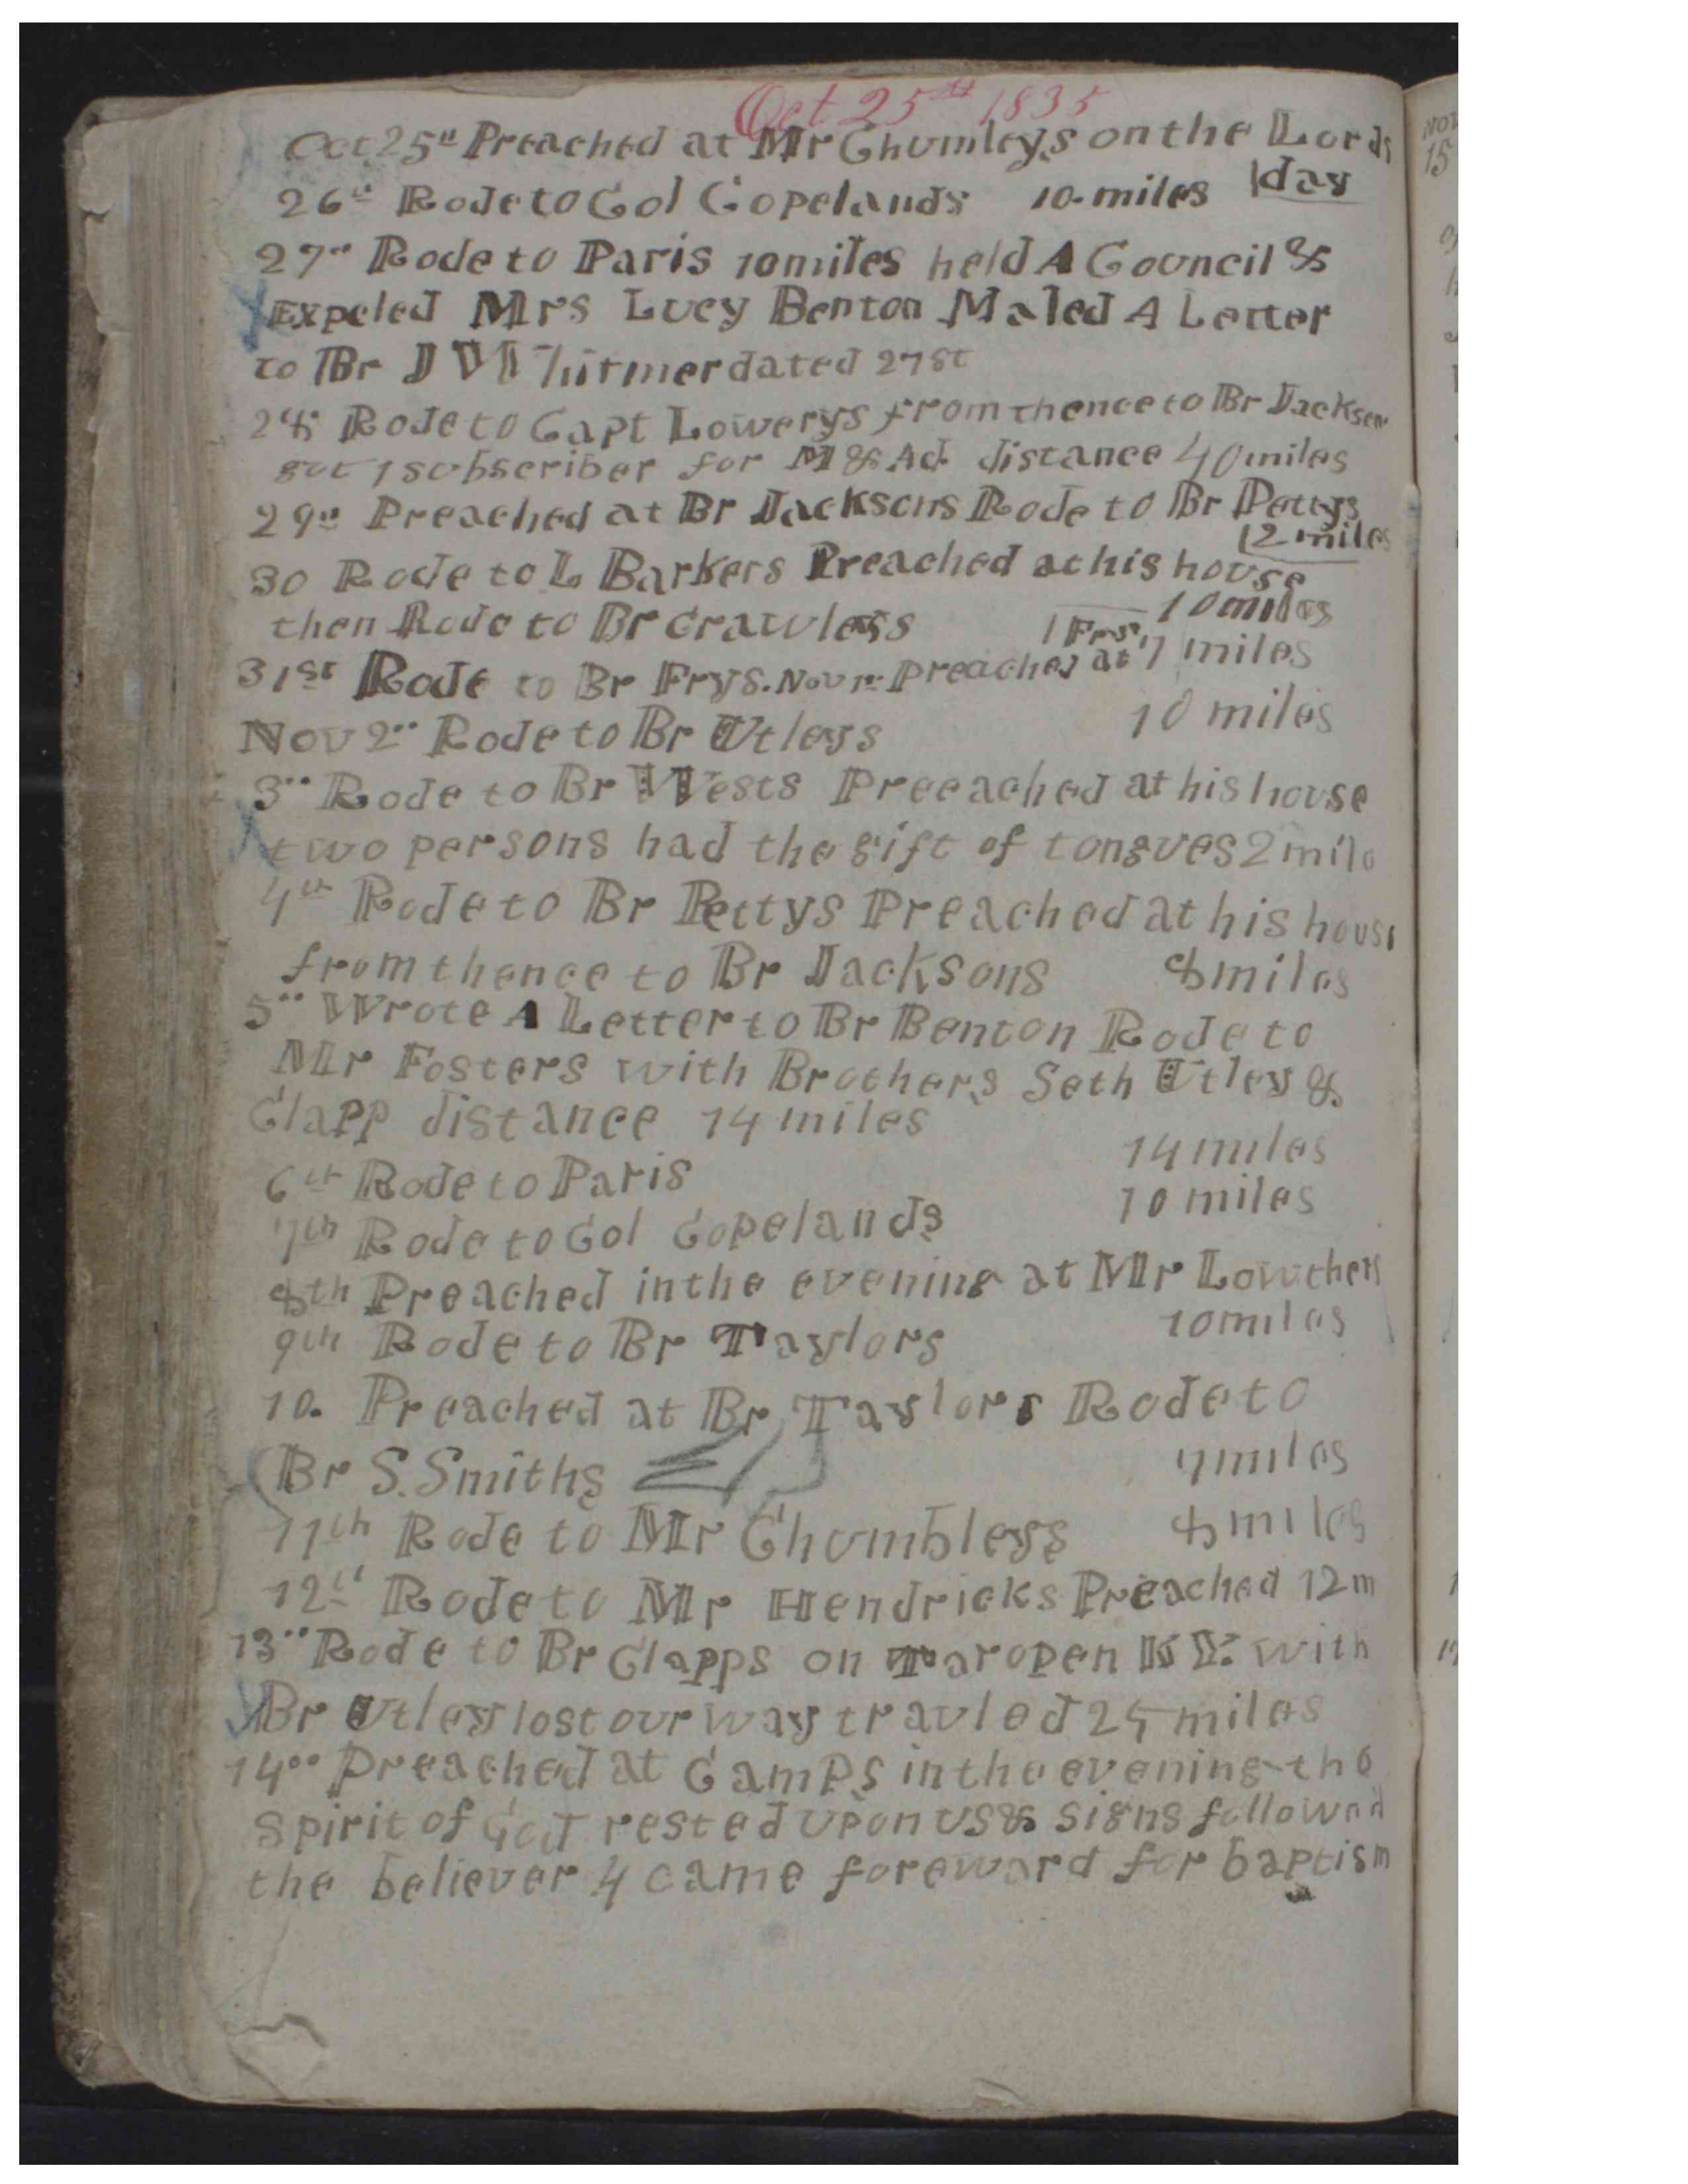 Oct 25th 1835
Oct 25th Preached at Mr Chumleys on the Lords
day
26th Rode to Col Copelands 10 miles
27th Rode to Paris 10 miles held A Council &
Expeled Mrs Lucy Benton Maled A Letter
to Br D Whitmer dated 27st
28 Rode to Capt Lowerys from thence to Br Jackson
got 1 subscriber for M & Ad. distance 40 miles
29th Preached at Br Jacksons Rode to Br Pettys
12 miles
30 Rode to L Barkers Preached at his house
10 miles
then Rode to Br Crawleys 7 miles
31st Rode to Br Frys. Nov 1st Preached at Frys
Nov 2nd Rode to Br Utleys 10 miles
3rd Rode to Br Wests Preeached at his house
two persons had the gift of tongues 2 mile
4th Rode to Br Pettys Preached at his house
from thence to Br Jacksons 8 miles
5th Wrote A Letter to Br Benton Rode to
Mr Fosters with Brothers Seth Utley &
Clapp distance 14 miles
6th Rode to Paris 14 miles
7th Rode to Col Copelands 10 miles
8th Preached in the evening at Mr Lowthers
9th Rode to Br Taylors 10 miles
10. Preached at Br Taylors Rode to
Br S. Smiths 7 miles
11th Rode to Mr Chumbleys 8 miles
12th Rode to Mr Hendricks Preached 12 m
13th Rode to Br Clapps on Taropen KY. with
Br Utley lost our way travled 25 miles
14th Preached at Camps in the evening the
spirit of God rested upon us & signs followed
the believer 4 came foreward for baptism